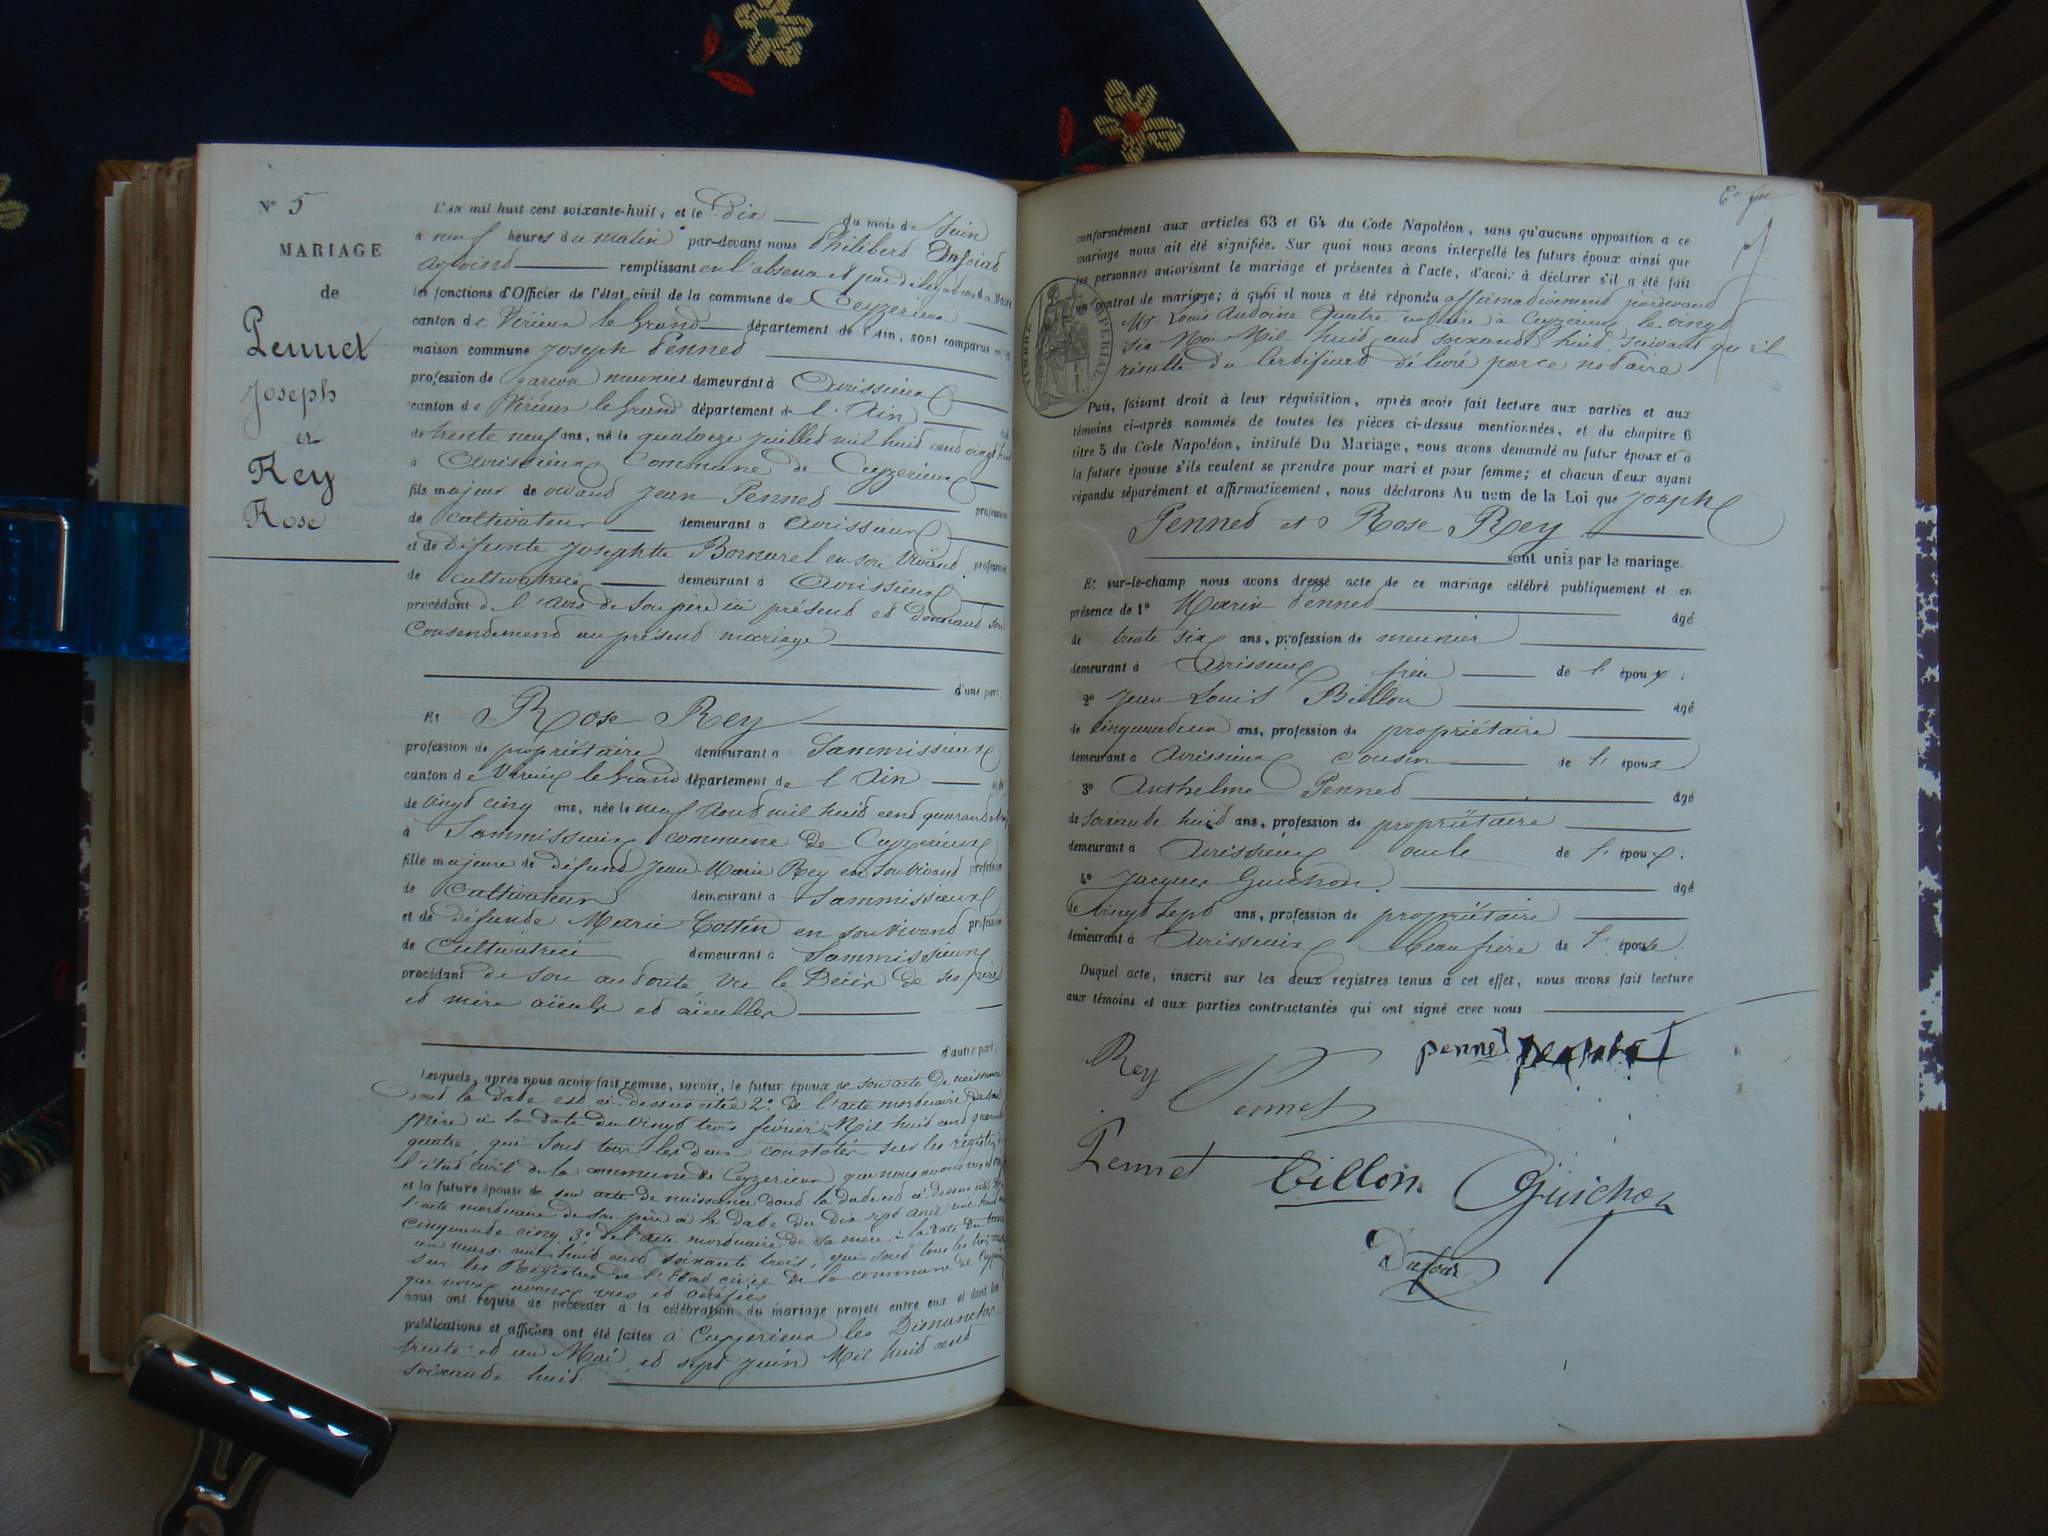 N° 5
MARIAGE
de
Pennet
Joseph
et
Rey
Rose
L'AN mil huit cent soixante-huit, et le Dix du mois de Juin
à neuf heures du matin par-devant nous Philibert
adjoint remplissant en l'absence et par délégation du Maire
les fonctions d'Officier de l'état civil de la commune de Ceyzerieux
canton de Virieux le Grand département de l'Ain, sont comparus en la
maison commune Joseph Pennet
profession de garçon meunier demeurant à Avrissieux
canton de Virieux le Grand département de l'Ain
de trente neuf ans, né le quatorze juillet mil huit cent vingt huit
à Avrissieux Commune de Ceyzerieux
fils majeur de vivant Jean Pennet profession
de cultivateur demeurant à Avrissieux
et de défunte Josephtte Bornarel en son vivant profession
de cultivatrice demeurant à Avrissieux
procédant de l'avis de son père ici présent et donnant son
consentement au présent mariage
d'une part,
Et Rose Rey
profession de propriétaire demeurant à Sammissieux
canton de Virieux le Grand département de l'Ain
de vingt cinq ans, née le neuf Aout mil huit cent quarante
à Sammissieux commune de Ceyzerieux
fille majeure de défunt Jean Marie Rey en son vivant profession
de Cultivateur demeurant à Sammissieux
et de défunte Marie Cottin en son vivant profession
de Cultivatrice demeurant à Sammissieux
procédant de son autorité, vu le Décès de ses père
et mère aïeuls et aïeulles
d'autre part;
Lesquels, après nous avoir fait remise, savoir, le futur époux de son acte de naissance
dont la date est ci-dessus citée 2° de l'acte mortuaire de sa
mère à la date du vingt trois février Mil huit cent quarante
quatre, qui sont tous les deux constatés sur les régistres de
l'état civil de la commune de Ceyzerieux que nous avons vus et
et la future épouse de son acte de naissance dont la date est ci-dessus citée 2°
l'acte mortuaire de son père à la date du dix sept avril mil huit cent
cinquante cinq 3° de l'acte mortuaire de sa mère à la date du trente
un mars mil huit cent soixante trois, qui sont tous les trois
sur les Registres de l'Etat civil de la commune de Ceyzerieux
que nous avons vus et vérifiés
nous ont requis de procéder à la célébration du mariage projeté entre eux et dont les
publications et affiches ont été faites à Ceyzerieux les Dimanches
trente et un Mai et sept Juin Mil huit cent
soixante huit
conformément aux articles 63 et 64 du Code Napoléon, sans qu'aucune opposition a ce
mariage nous ait été signifiée. Sur quoi nous avons interpellé les futurs époux ainsi que
les personnes autorisant le mariage et présentes à l'acte, d'avoir à déclarer s'il a été fait
un contrat de mariage; à quoi il nous a été répondu affirmativement pardevant
Me Louis Antoine Quatre notaire à Ceyzerieux le vingt
six Mai Mil huit cent soixante huit suivant qu'il
résulte du Certificat délivré par ce notaire
TIMBRE IMPERIAL
Puis, faisant droit à leur réquisition, après avoir fait lecture aux parties et aux
témoins ci-après nommés de toutes les pièces ci-dessus mentionnées, et du chapitre 6
titre 5 du Code Napoléon, intitulé Du Mariage, nous avons demandé au futur époux et à
la future épouse s'ils veulent se prendre pour mari et pour femme; et chacun d'eux ayant
répondu séparément et affirmativement, nous déclarons Au nom de la Loi que Joseph
Pennet et Rose Rey
sont unis par le mariage.
Et sur-le-champ nous avons dressé acte de ce mariage célébré publiquement et en
présence de 1° Marin Pennet âgé
de trente six ans, profession de meunier
demeurant à Avrissieux frère de l'époux;
2° Jean Louis Billon âgé
de cinquante deux ans, profession de propriétaire
demeurant à Avrissieux Cousin de l'époux
3° Anthelme Pennet âgé
de soixante huit ans, profession de propriétaire
demeurant à Avrissieux oncle de l'époux;
4° Jacques Guichon âgé
de vingt sept ans, profession de propriétaire
demeurant à Avrissieux beau frère de l'épouse.
Duquel acte, inscrit sur les deux registres tenus à cet effet, nous avons fait lecture
aux témoins et aux parties contractantes qui ont signé avec nous
Rey
pennet
Pennet
Pennet
billon
Guichon
Dufour